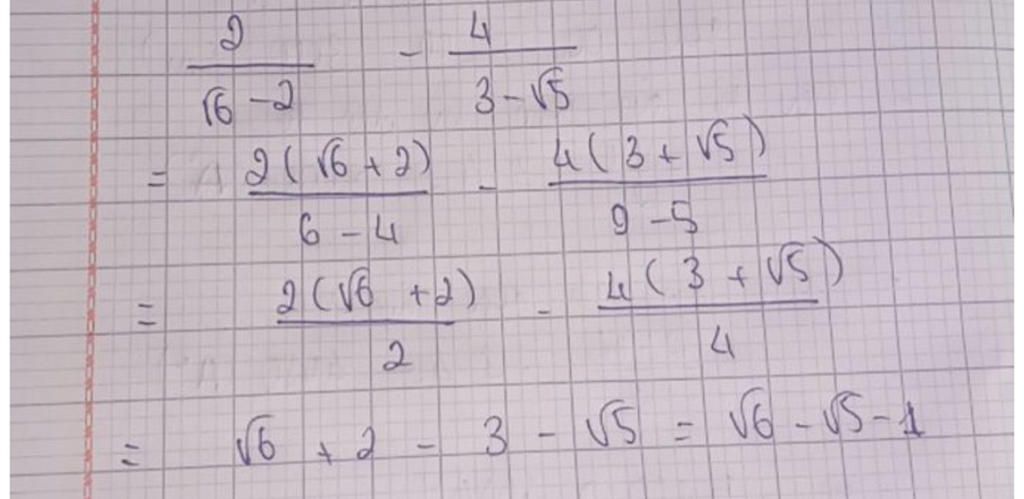 2/(√6 - 2) - 4/(3 - √5)
= 2(√6 + 2)/(6 - 4) - 4(3 + √5)/(9 - 5)
= 2(√6 + 2)/2 - 4(3 + √5)/4
= √6 + 2 - 3 - √5 = √6 - √5 - 1